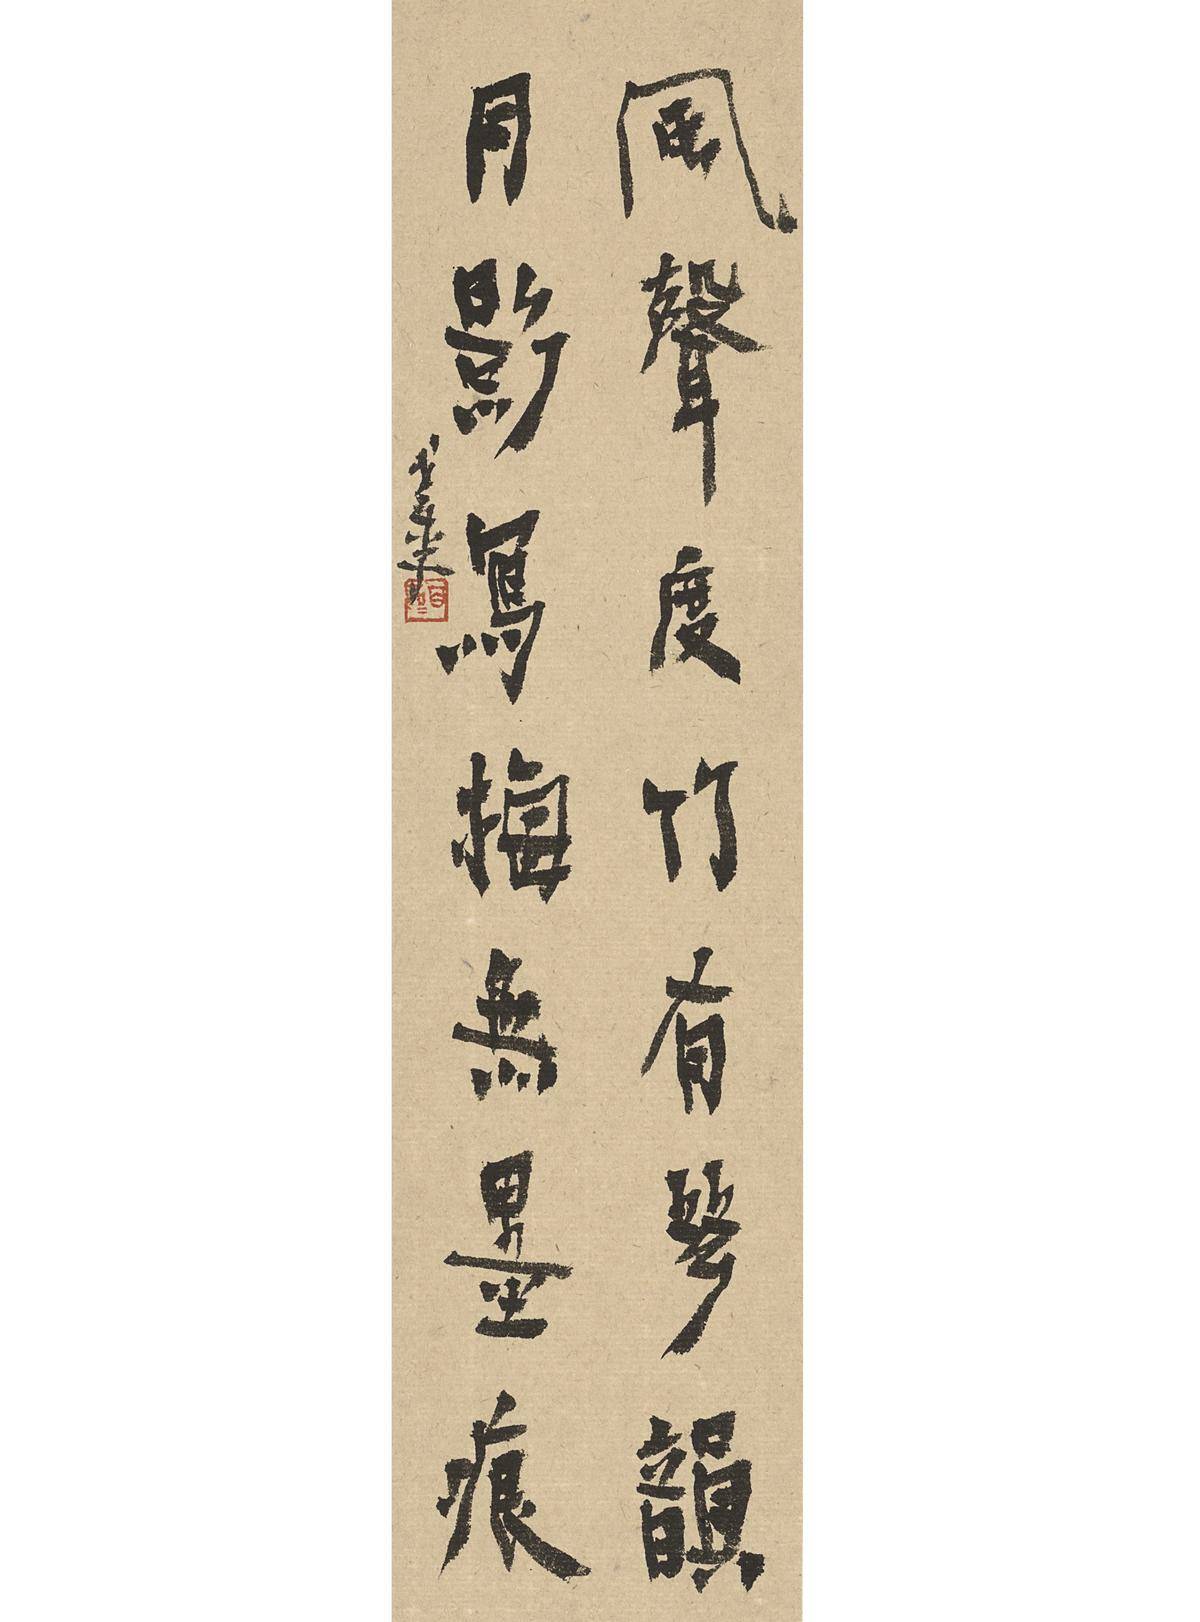 風聲度竹有琴韻
月影寫梅無墨痕